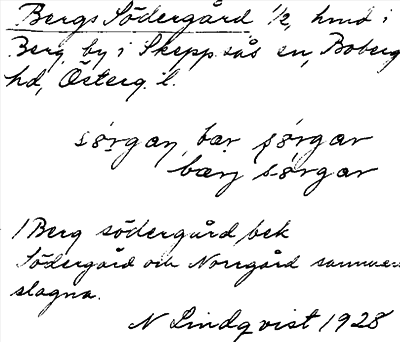 Bergs Södergård 1/2, hmd i
Berg, by i Skeppsås sn, Boberg
hd, Österg. l.
sørgaŋ, bær sørgar
bærj sørgar
/Berg södergård, bek
Södergård och Norrgård samman
slagna.
N Lindqvist 1928